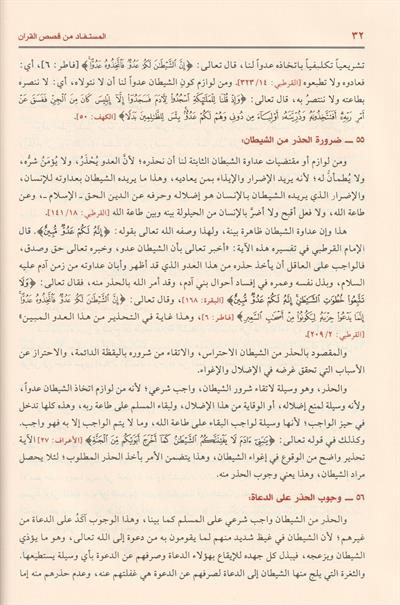 ٣٢ المستفاد من قصص القرآن
تشريعياً تكليفياً باتخاذه عدواً لنا، قال تعالى: ﴿إِنَّ ٱلشَّيْطَٰنَ لَكُمْ عَدُوٌّ فَٱتَّخِذُوهُ عَدُوًّا﴾ [فاطر: ٦]، أي:
فعادوه ولا تطيعوه [القرطبي: ٣٢٣/١٤]. ومن لوازم كون الشيطان عدواً لنا أن لا نتولاه، أي: لا ننصره
بطاعته ولا ننتصرُ به، قال تعالى: ﴿وَإِذْ قُلْنَا لِلْمَلَٰٓئِكَةِ ٱسْجُدُوا۟ لِءَادَمَ فَسَجَدُوٓا۟ إِلَّآ إِبْلِيسَ كَانَ مِنَ ٱلْجِنِّ فَفَسَقَ عَنْ
أَمْرِ رَبِّهِۦٓ أَفَتَتَّخِذُونَهُۥ وَذُرِّيَّتَهُۥٓ أَوْلِيَآءَ مِن دُونِى وَهُمْ لَكُمْ عَدُوٌّۢ بِئْسَ لِلظَّٰلِمِينَ بَدَلًا﴾ [الكهف: ٥٠].
٥٥ ـ ضرورة الحذر من الشيطان:
ومن لوازم أو مقتضيات عداوة الشيطان الثابتة لنا أن نحذره؛ لأنَّ العدو يُحْذَرُ، ولا يؤمَنُ شَرُّه،
ولا يُطمأنُّ له؛ لأنه يريد الإضرار والإيذاء بمن يعاديه، وهذا ما يريده الشيطان بعداوته للإنسان،
والإضرار الذي يريده الشيطان بالإنسان هو إضلاله وحرفه عن الدين الحق ـ الإسلام ـ، وعن
طاعة الله، ولا فعل أقبح ولا أضرَّ بالإنسان من الحيلولة بينه وبين طاعة الله [القرطبي: ١٤١/١٨].
هذا وإن عداوة الشيطان ظاهرة بينة، ولهذا وصفه الله تعالى بقوله: ﴿إِنَّهُۥ لَكُمْ عَدُوٌّ مُّبِينٌ﴾ قال
الإمام القرطبي في تفسيره هذه الآية: «أخبر تعالى بأن الشيطان عدو، وخبره تعالى حق وصدق،
فالواجب على العاقل أن يأخذ حذره من هذا العدو الذي قد أظهر وأبان عداوته من زمن آدم عليه
السلام، وبذل نفسه وعمره في إفساد أحوال بني آدم، وقد أمر الله بالحذر منه، فقال تعالى: ﴿وَلَا
تَتَّبِعُوا۟ خُطُوَٰتِ ٱلشَّيْطَٰنِ إِنَّهُۥ لَكُمْ عَدُوٌّ مُّبِينٌ﴾ [البقرة: ١٦٨]، وقال تعالى: ﴿إِنَّ ٱلشَّيْطَٰنَ لَكُمْ عَدُوٌّ فَٱتَّخِذُوهُ عَدُوًّا
إِنَّمَا يَدْعُوا۟ حِزْبَهُۥ لِيَكُونُوا۟ مِنْ أَصْحَٰبِ ٱلسَّعِيرِ﴾ [فاطر: ٦]، وهذا غاية في التحذير من هذا العدو المبين»
[القرطبي: ٢٠٩/٢].
والمقصود بالحذر من الشيطان الاحتراس، والاتقاء من شروره باليقظة الدائمة، والاحتراز عن
الأسباب التي تحقق غرضه في الإضلال والإغواء.
والحذر، وهو وسيلة لاتقاء شرور الشيطان، واجب شرعي؛ لأنه من لوازم اتخاذ الشيطان عدواً،
ولأنه وسيلة لمنع إضلاله، أو الوقاية من هذا الإضلال، ولبقاء المسلم على طاعة ربه، وهذه كلها تدخل
في حيز الواجب؛ لأنها وسيلة لواجب البقاء على طاعة الله، وما لا يتم الواجب إلا به فهو واجب.
وكذلك في قوله تعالى: ﴿يَٰبَنِىٓ ءَادَمَ لَا يَفْتِنَنَّكُمُ ٱلشَّيْطَٰنُ كَمَآ أَخْرَجَ أَبَوَيْكُم مِّنَ ٱلْجَنَّةِ﴾ [الأعراف: ٢٧] الآية
تحذير واضح من الوقوع في إغواء الشيطان، وهذا يتضمن الأمر بأخذ الحذر المطلوب؛ لئلا يحصل
مراد الشيطان، وهذا يعني وجوب الحذر منه.
٥٦ ـ وجوب الحذر على الدعاة:
والحذر من الشيطان واجب شرعي على المسلم كما بينا، وهذا الوجوب آكدُ على الدعاة من
غيرهم؛ لأن الشيطان في غيظ شديد منهم لما يقومون به من دعوة إلى الله تعالى، وهو ما يؤذي
الشيطان ويزعجه، فيبذل كل جهده للإيقاع بهؤلاء الدعاة وصرفهم عن الدعوة بأي وسيلة يستطيعها.
والثغرة التي يلج منها الشيطان إلى الدعاة لصرفهم عن الدعوة هي غفلتهم عنه، وعدم حذرهم منه إما